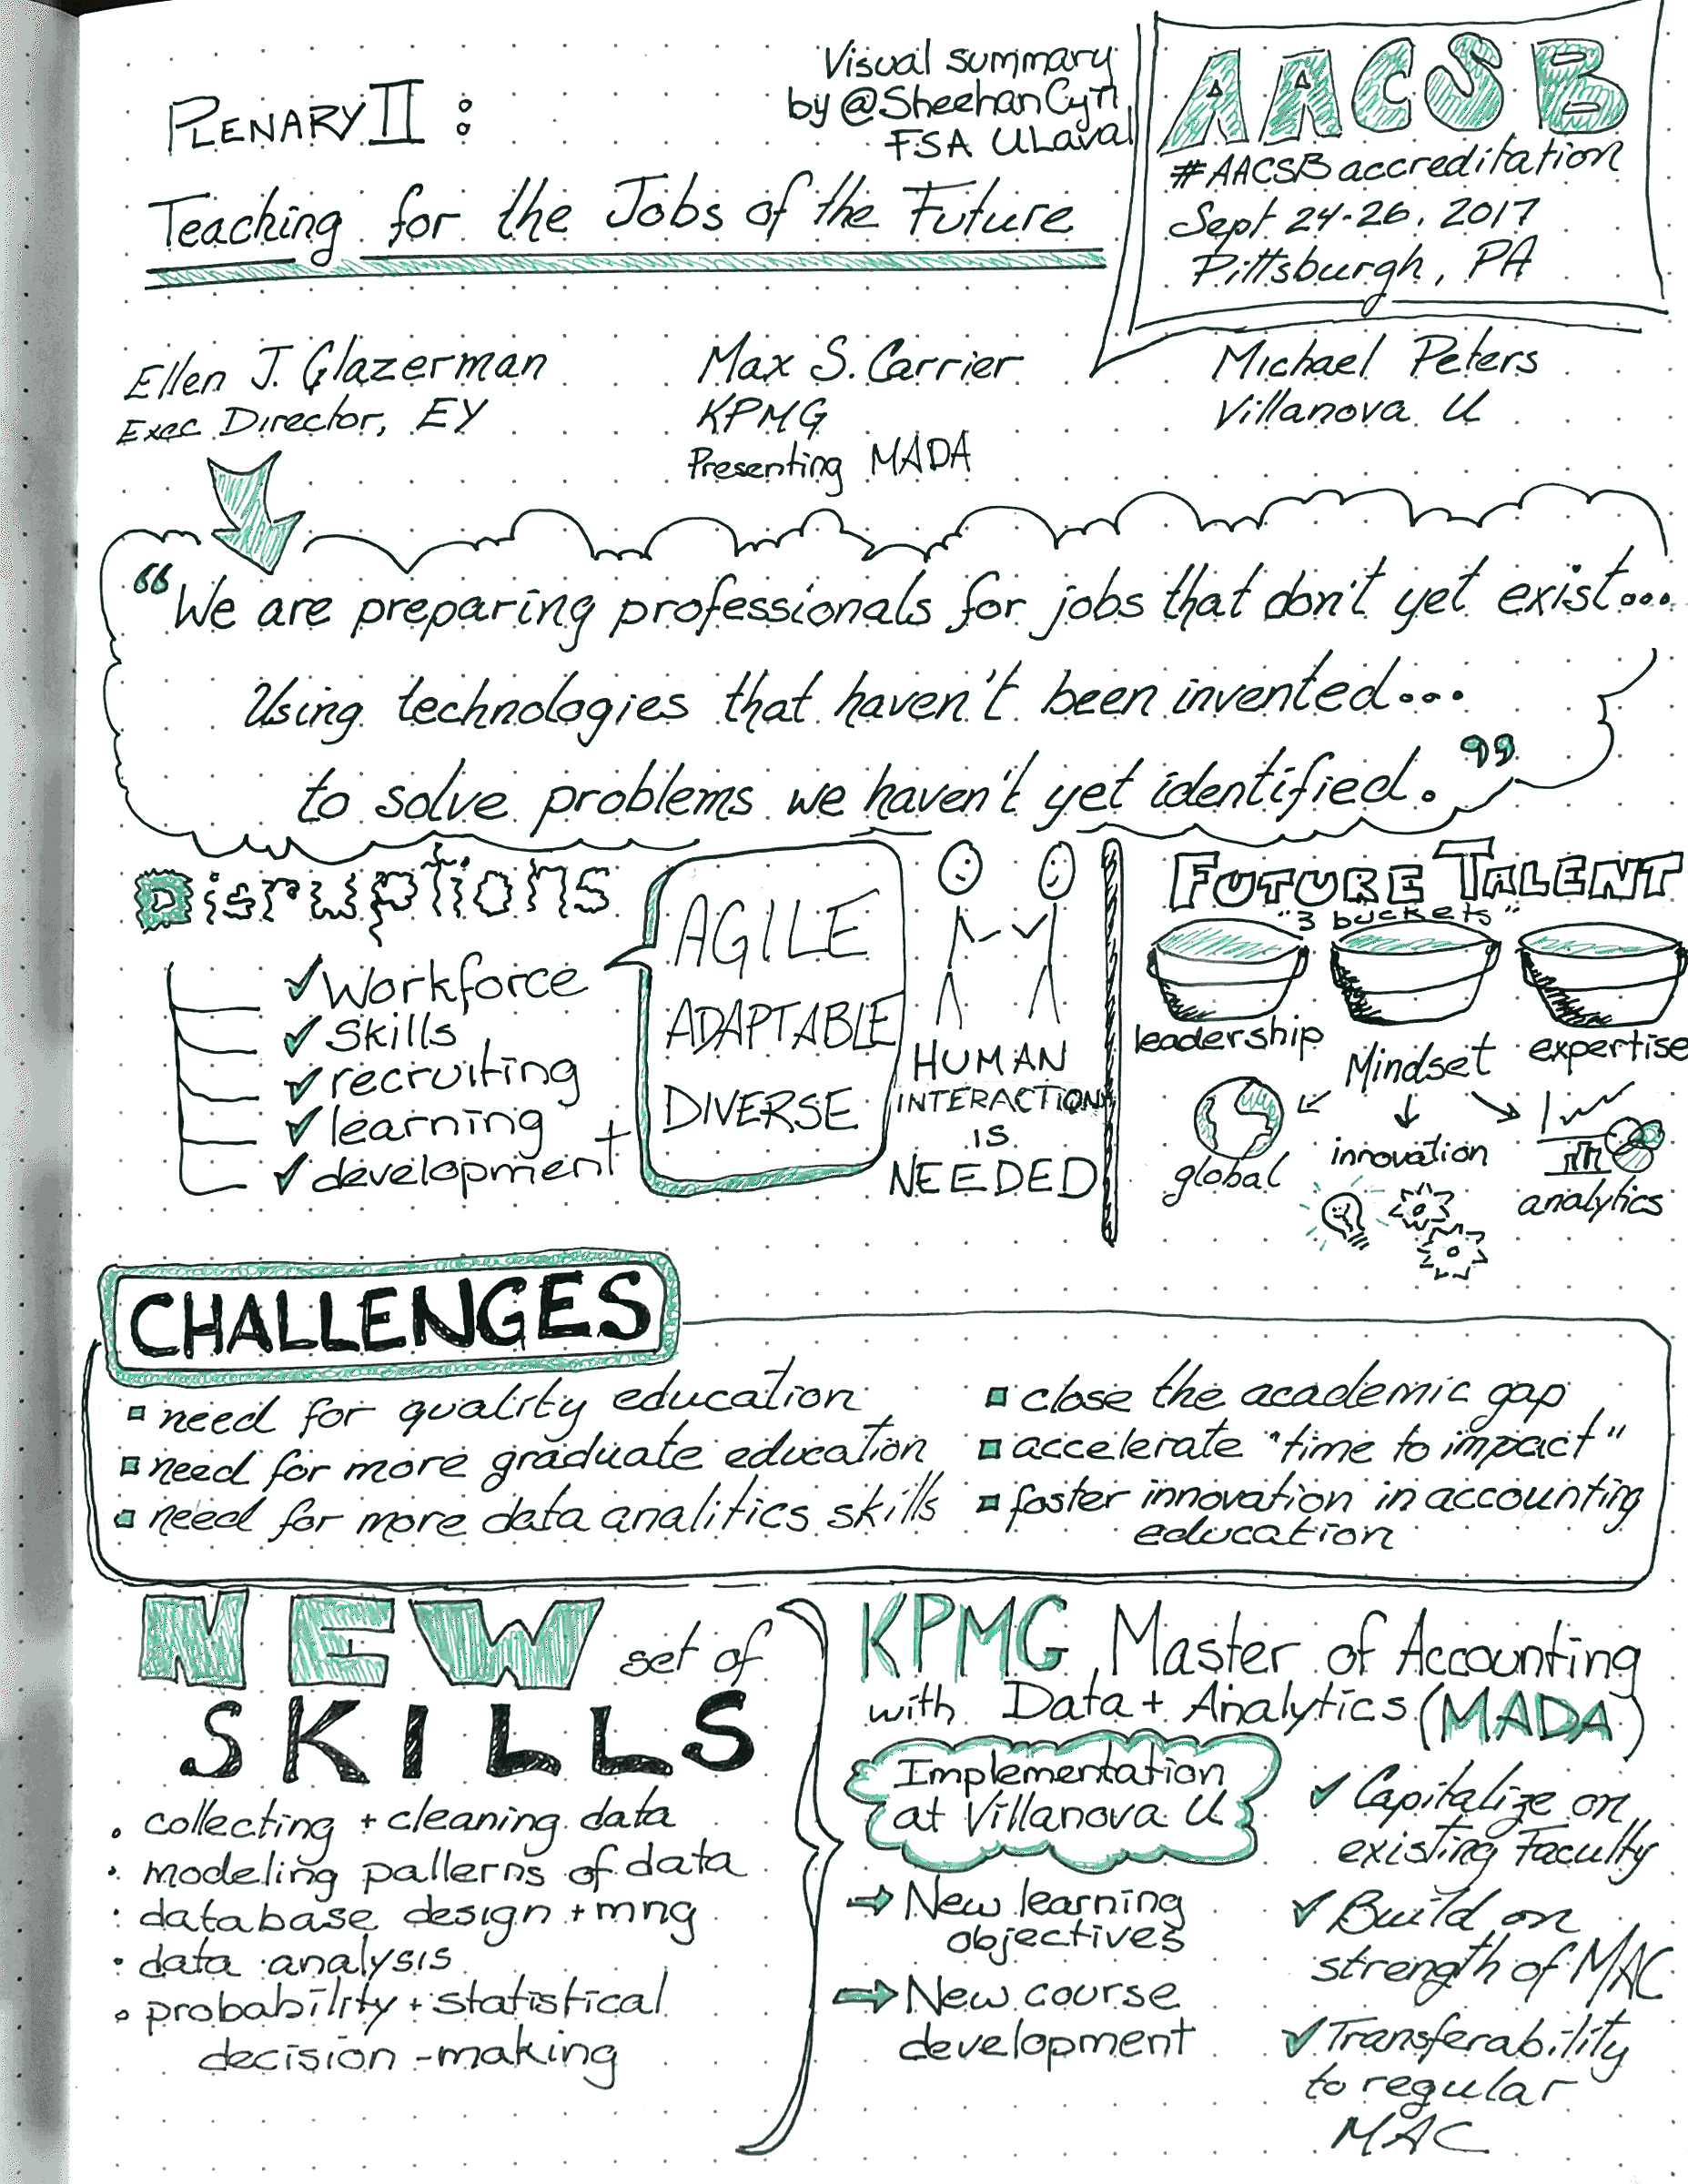 PLENARY II :
Teaching for the Jobs of the Future
Visual summary
by @SheehanCyn
FSA ULaval
AACSB
#AACSBaccreditation
Sept 24-26, 2017
Pittsburgh, PA
Ellen J. Glazerman
Exec Director, EY
Max S. Carrier
KPMG
Presenting MADA
Michael Peters
Villanova U
“We are preparing professionals for jobs that don't yet exist...
Using technologies that haven't been invented...
to solve problems we haven't yet identified.”
Disruptions
Workforce
Skills
recruiting
learning +
development
AGILE
ADAPTABLE
DIVERSE
HUMAN
INTERACTION
IS
NEEDED
FUTURE TALENT
"3 buckets"
leadership
Mindset
expertise
global
innovation
analytics
CHALLENGES
need for quality education
need for more graduate education
need for more data analitics skills
close the academic gap
accelerate "time to impact"
foster innovation in accounting
education
NEW set of
SKILLS
• collecting + cleaning data
• modeling patterns of data
• database design + mng
• data analysis
• probability + statistical
decision-making
KPMG Master of Accounting
with Data + Analytics (MADA)
Implementation
at Villanova U
New learning
objectives
New course
development
Capitalize on
existing Faculty
Build on
strength of MAC
Transferability
to regular
MAC